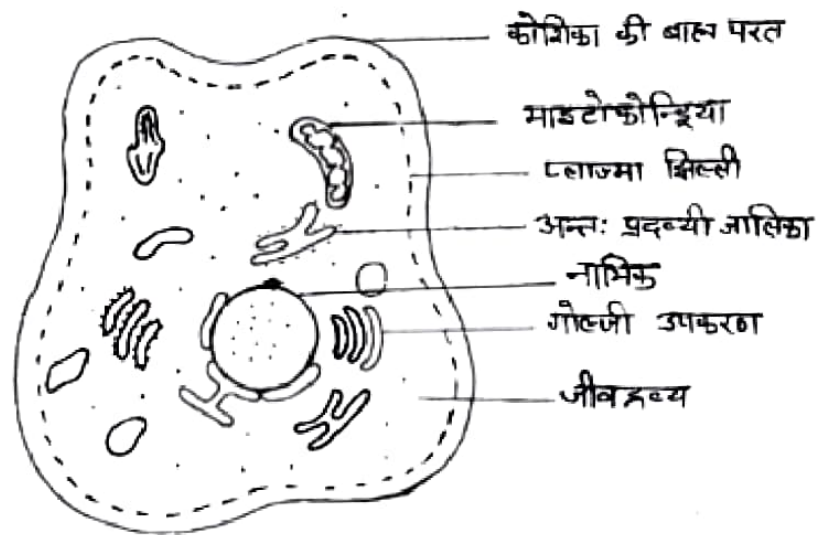 कोशिका की बाह्य परत
माइटोकोन्ड्रिया
प्लाज्मा झिल्ली
अन्तः प्रदव्यी जालिका
नाभिक
गोल्जी उपकरण
जीवद्रव्य